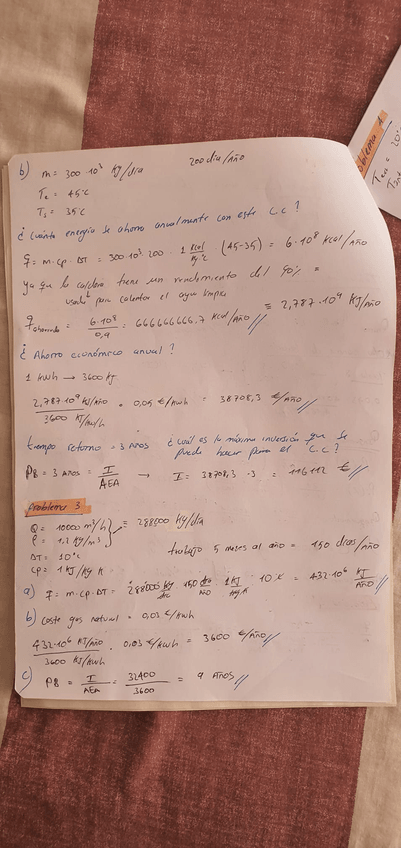 b) m = 300·10³ Kg/dia    200 dia/año
Te = 45ºC
Ts = 35ºC
¿ Cuánta energía se ahorra anualmente con este C.C ?
q = m·cp·ΔT = 300·10³·200 · 1 Kcal/Kg·ºC (45-35) = 6·10⁸ Kcal/año
ya que la caldera tiene un rendimiento del 90%
usado para calentar el agua limpia
q ahorrado = 6·10⁸/0,9 = 666666666,7 Kcal/año = 2,787·10⁹ KJ/año
¿ Ahorro económico anual ?
1 kWh → 3600 Kj
2,787·10⁹ KJ/año / 3600 KJ/kWh · 0,05 €/kWh = 38708,3 €/año
tiempo retorno = 3 Años ¿ Cuál es la máxima inversión que se
puede hacer para el C.C. ?
PB = 3 años = I/AEA → I = 38708,3 · 3 = 116112 €
Problema 3
Q = 10000 m³/h
ρ = 1,2 Kg/m³ = 288000 Kg/dia
ΔT = 10ºC    trabajo 5 meses al año = 150 dias/año
Cp = 1 KJ/Kg·K
a) q = m·cp·ΔT = 288000 Kg/dia · 150 dia/año · 1 KJ/Kg·K · 10 K = 432·10⁶ KJ/año
b) coste gas natural = 0,03 €/kWh
432·10⁶ KJ/año / 3600 KJ/kWh · 0,03 €/kWh = 3600 €/año
c) PB = I/AEA = 32400/3600 = 9 Años